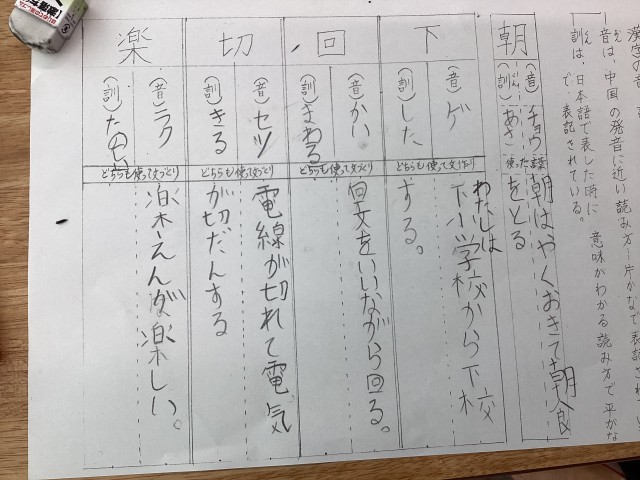 漢字の音
音は、中国の発音に近い読み方…片かなで表記され
訓は、日本語で表した時に意味がわかる読み方で平がな
で表記されている。
朝
(音)チョウ
(訓)あさ
使った文
朝はやくおきて朝食
をとる
下
(音)ゲ
(訓)した
どちらも使って文づくり
わたしは
下小学校から下校
する。
回
(音)かい
(訓)まわる
どちらも使って文づくり
回文をいいながら回る。
切
(音)セツ
(訓)きる
どちらも使って文づくり
電線が切れて電気
が切だんする
楽
(音)ラク
(訓)たのしい
どちらも使って文づくり
楽えんが楽しい。